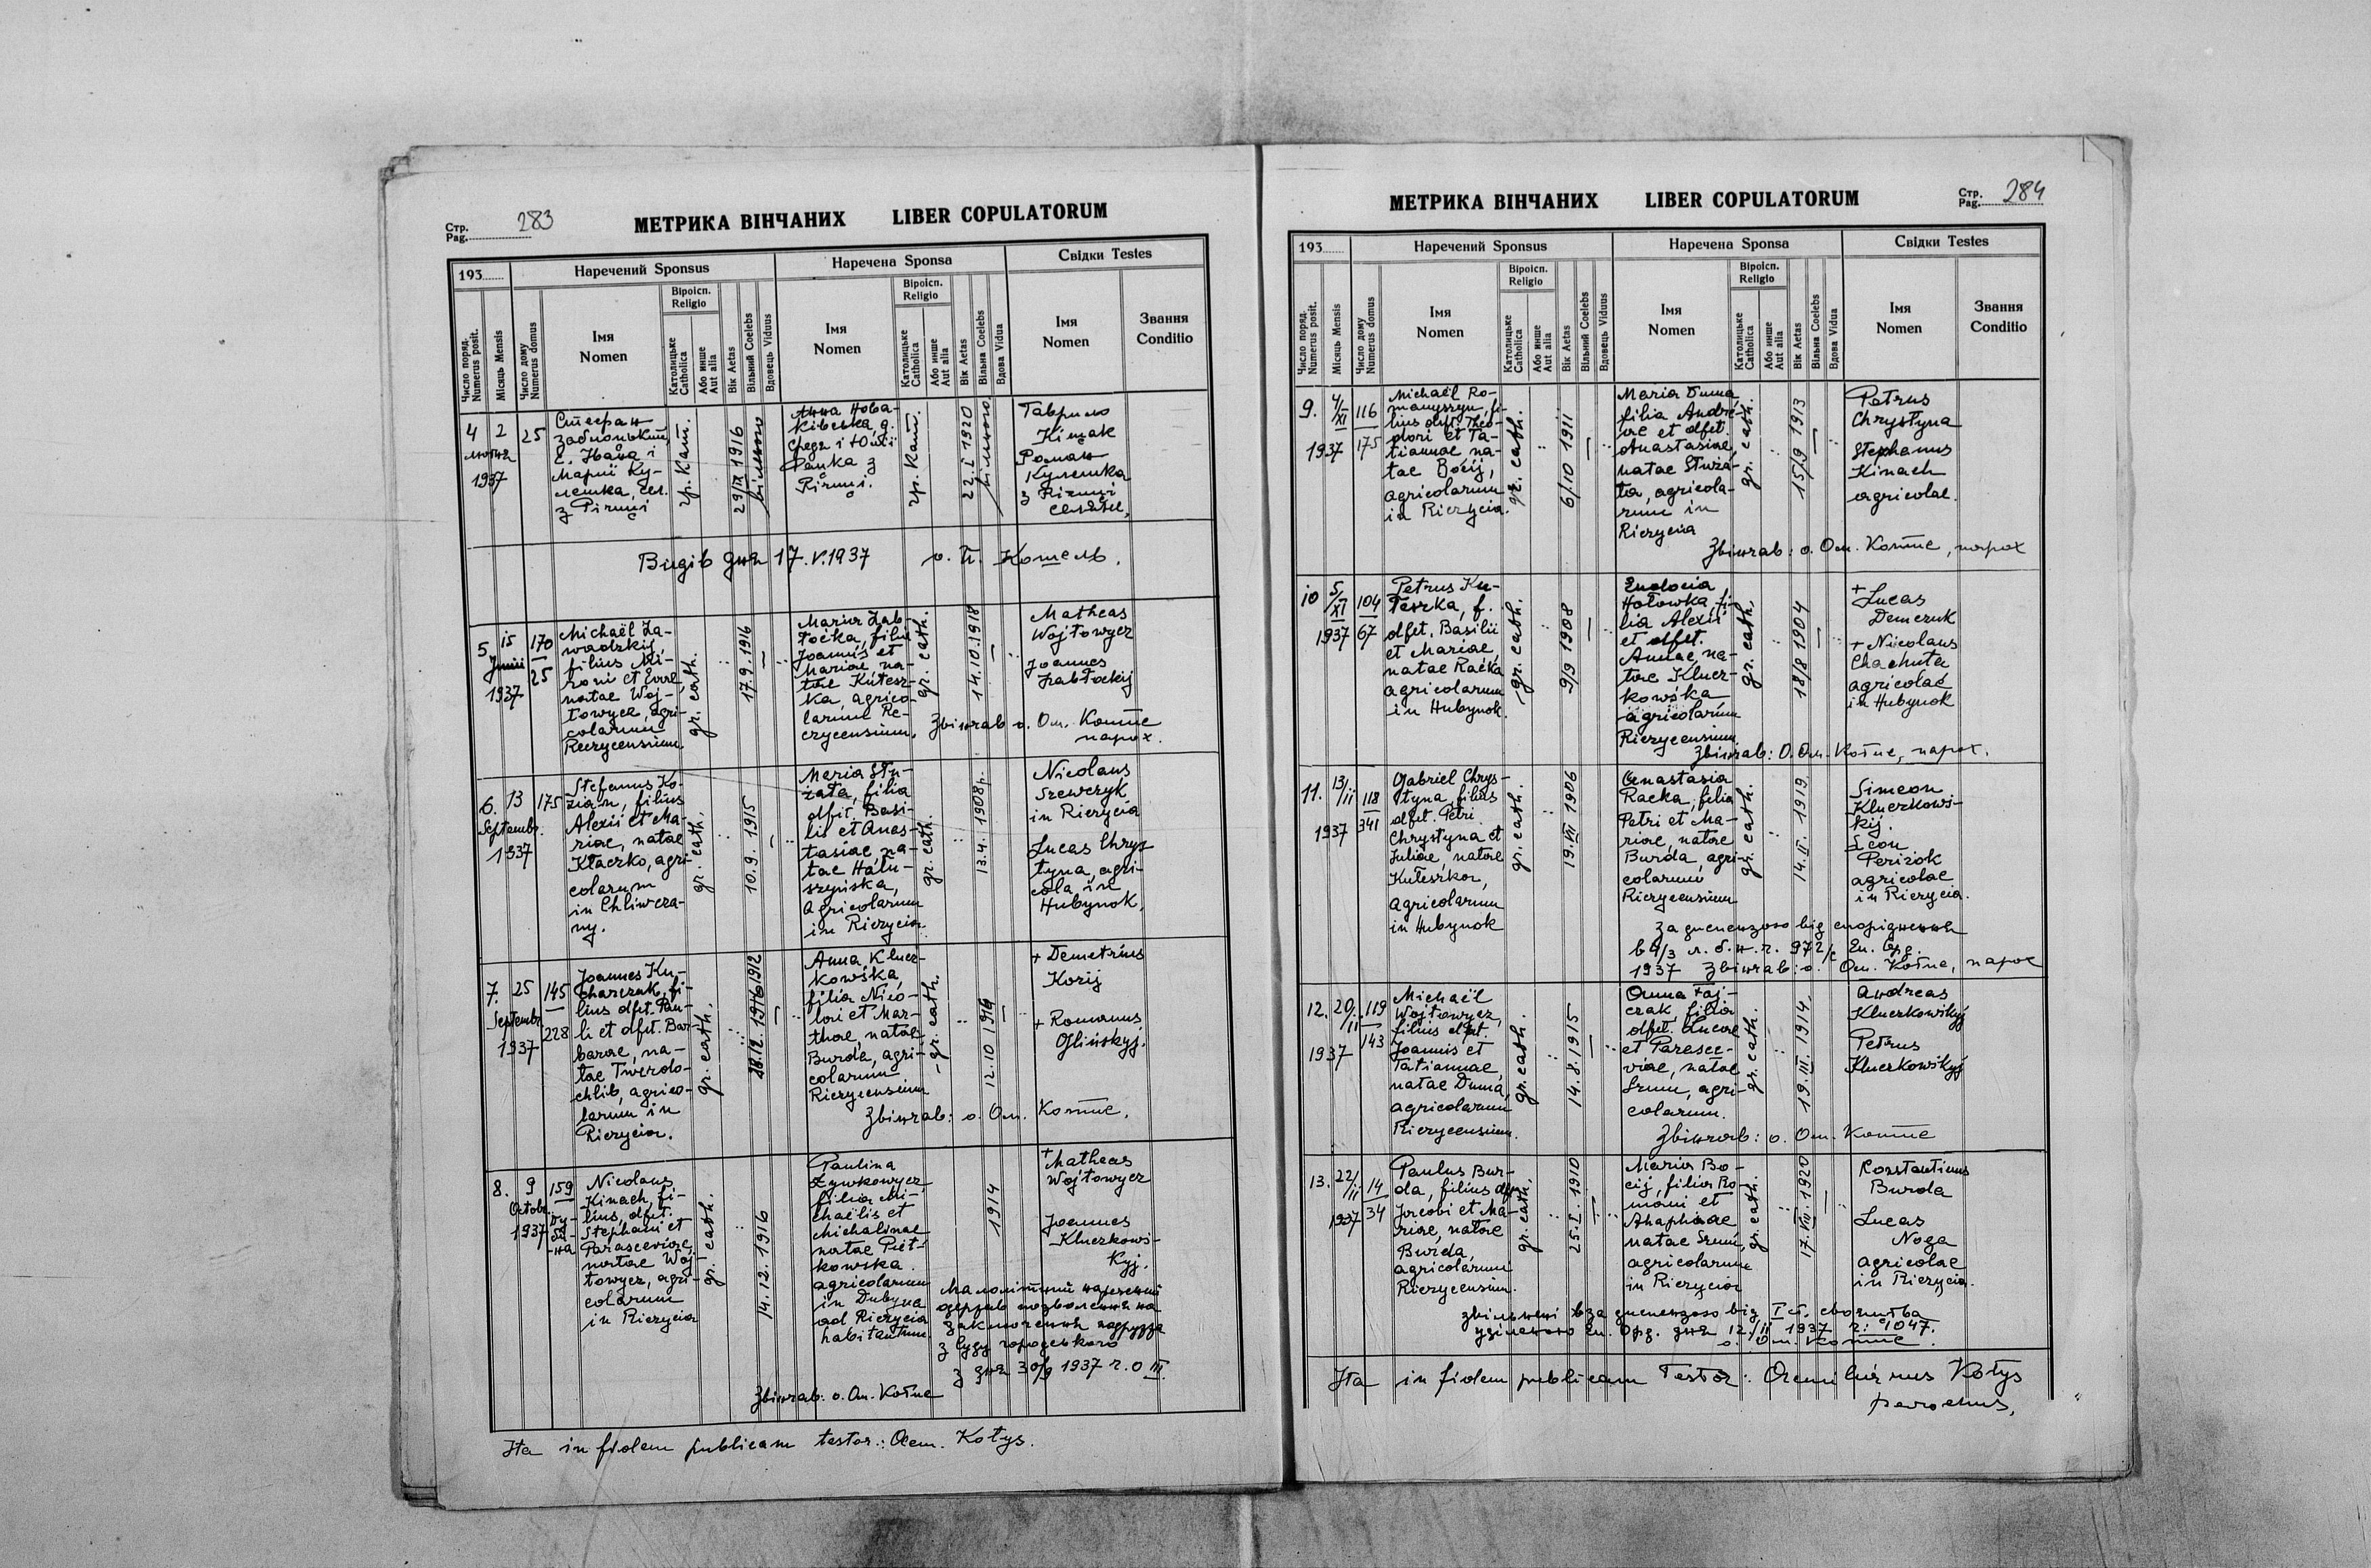 Стр.
Pag. 283
МЕТРИКА ВІНЧАНИХ LIBER COPULATORUM
193
Наречений Sponsus
Наречена Sponsa
Свідки Testes
Число поряд.
Numerus posit.
Місяць Mensis
Число дому
Numerus domus
Імя
Nomen
Віроісп.
Religio
Католицьке
Catholica
Або инше
Aut alia
Вік Aetas
Вільний Coelebs
Вдовець Viduus
Імя
Nomen
Віроісп.
Religio
Католицьке
Catholica
Або инше
Aut alia
Вік Aetas
Вільна Coelebs
Вдова Vidua
Імя
Nomen
Звання
Conditio
4
2
лютня
1937
25
Стефан
с. Івана і
Марії Ку-
лешка, сел.
з Річиці
гр. кат.
29/IX 1916
вільного
Анна Нова-
ківська, д.
Рацка з
Річиці.
гр. кат.
22.I 1920
вільного
Гаврило
Кінах
Роман
Кулешка
з Річиці
Видів дня 17.V.1937 о. П. Кошель.
5.
15
Junii
1937
170
25
Michaël Za-
wadzkij,
filius Mi-
roni et Evae,
natae Woj-
towycz, agri-
colarum
Rieczycensium.
gr. cath.
17.9.1916
Maria Zab-
łoćka, filia
Joannis et
Mariae na-
tae Kułesz-
ka, agrico-
larum Re-
czycensium.
gr. cath.
14.10.1918
Matheas
Wojtowycz
Joannes
Zabłockij
Звінчав о. Ом. Котис
парох.
6.
13
Septembr.
1937
175
Stefanus Ko-
zian, filius
Alexii et Ma-
riae, natae
Kłaczko, agri-
colarum
in Chliwcza-
ny.
gr. cath.
10.9.1915
Maria Stu-
żata, filia
dfct. Basi-
lii et Anas-
tasiae na-
tae Hału-
szyńska,
agricolarum
in Rieczycia
gr. cath.
13.4.1908р.
Nicolaus
Szewczyk
in Rieczycia
Lucas Chrys
tyna, agri-
cola in
Hubynok.
7.
25
Septembr.
1937
145
228
Joannes Ku-
charczuk, fi-
lius dfct. Pau-
li et dfct. Bar-
barae, na-
tae Twerdo-
chlib, agrico-
larum in
Rieczycia.
gr. cath.
1912
Anna Klucz-
kowśka,
filia Nico-
lai et Mar-
thae, natae
Burda, agri-
colarum
Rieczycensium
gr. cath.
12.10 1916
+ Demetrius
Korij
+ Romanus
Glińskyj.
Звінчав: о. Ом. Котис.
8.
9
Octobr.
1937
159
Ду-
би-
на
Nicolaus
Kinach, fi-
lius dfct.
Stephani et
Parasceviae,
natae Woj-
towycz, agri-
colarum
in Rieczycia
gr. cath.
14.12.1916
Paulina
Żywkowycz
filia Mi-
chaëlis et
Michalinae
natae Piet-
kowska
agricolarum
in Dubyna
ad Rieczycia
habitantium.
1914
+ Matheas
Wojtowycz
Joannes
Kluczkows-
kyj.
Малолітний наречений
одержав позволення на
заключення подружжа
з суду городського
з дня 30/9 1937 r. O III.
Звінчав: о. Ом. Котис
Ita in fidem publicam testor: Oem. Kotys.
Стр.
Pag. 284
МЕТРИКА ВІНЧАНИХ LIBER COPULATORUM
193
Наречений Sponsus
Наречена Sponsa
Свідки Testes
Число поряд.
Numerus posit.
Місяць Mensis
Число дому
Numerus domus
Імя
Nomen
Віроісп.
Religio
Католицьке
Catholica
Або инше
Aut alia
Вік Aetas
Вільний Coelebs
Вдовець Viduus
Імя
Nomen
Віроісп.
Religio
Католицьке
Catholica
Або инше
Aut alia
Вік Aetas
Вільна Coelebs
Вдова Vidua
Імя
Nomen
Звання
Conditio
9.
4/XI
1937
116
175
Michaël Ro-
manyszyn, fi-
lius dfct. Theo-
dori et Ta-
tiannae na-
tae Bocij,
agricolarum
in Rieczycia.
gr. cath.
6/10 1911
Maria Duma,
filia Andre-
ae et dfct.
Anastasiae,
natae Stuża-
ta, agricola-
rum in
Rieczycia
gr. cath.
15/9 1913
Petrus
Chrystyna
Stephanus
Kinach
agricolae.
Звінчав: о. Ом. Котис, парох
10
5/XI
1937
104
67
Petrus Ku-
łeszka, f.
dfct. Basilii
et Mariae,
natae Raćka
agricolarum
in Hubynok.
gr. cath.
9/9 1908
Eudocia
Hołowka, fi-
lia Alexii
et dfct.
Annae na-
tae Klucz-
kowśka
agricolarum
Rieczycensium
gr. cath.
18/8 1904
+ Lucas
Demczuk
+ Nicolaus
Chachuła
agricolae
in Hubynok
Звінчав: О. Ом. Котис, парох.
11.
13/11
1937
118
341
Gabriel Chrys-
tyna, filius
dfct. Petri
Chrystyna et
Juliae, natae
Kułeszka,
agricolarum
in Hubynok
gr. cath.
19.VII 1906
Anastasia
Racka, filia
Petri et Ma-
riae, natae
Burda, agri-
colarum
Rieczycensium
gr. cath.
14.II.1919
Simeon
Kluczkows-
kij.
Leon
Perizok
agricolae
in Rieczycia.
за диспензою від споріднення
1937 Звінчав: о. Ом. Котис, парох
12.
20/11
1937
119
143
Michaël
Wojtowycz,
filius dfct.
Joannis et
Tatiannae,
natae Duma,
agricolarum
Rieczycensium.
gr. cath.
14.8.1915
Anna Faj-
czak, filia
dfct. Lucae
et Parasce-
viae, natae
Szum, agri-
colarum.
gr. cath.
19.III.1914.
Andreas
Kluczkowśkyj
Petrus
Kluczkowśkyj
Звінчав: о. Ом. Котис
13.
22/11
1937
14
34
Paulus Bur-
da, filius dfct.
Jacobi et Ma-
riae, natae
Burda,
agricolarum
Rieczycensium.
gr. cath.
25.I.1910
Maria Bo-
cij, filia Ro-
mani et
Ahaphiae
natae Szum,
agricolarum
in Rieczycia
gr. cath.
17.VIII.1920
Constantinus
Burda
Lucas
Noga
agricolae
in Rieczycia.
звінчані за диспензою від
уділеною Еп. Орд. дня 12/II 1937 ч: 1047.
о. Ом. Котис.
Ita in fidem publicam Testor: Oemilianus Kotys
parochus,